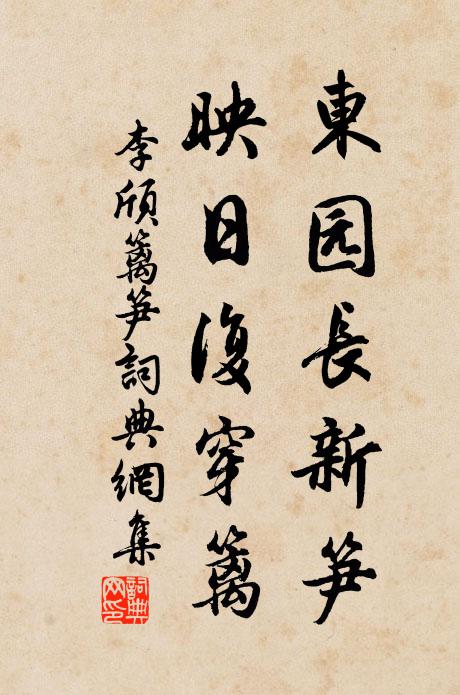 東园長新笋
映日復穿篱
李頎篱笋詞典網集
詞典网印